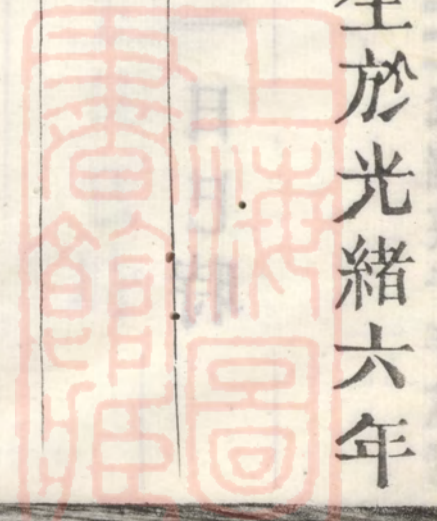 於光緒六年
上海圖
書館藏